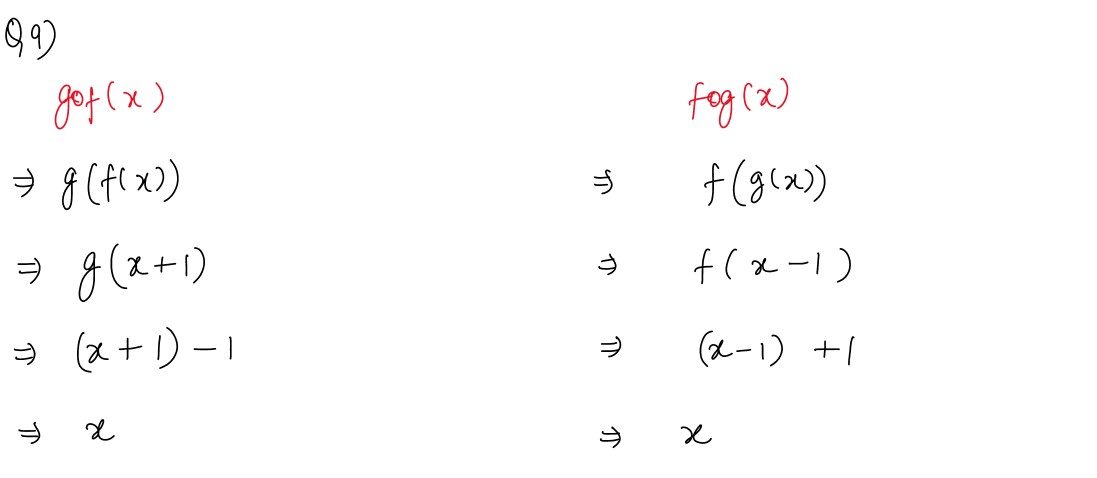 Q 9)
gof(x)
⇒ g(f(x))
⇒ g(x+1)
⇒ (x+1)-1
⇒ x
fog(x)
⇒ f(g(x))
⇒ f(x-1)
⇒ (x-1) +1
⇒ x